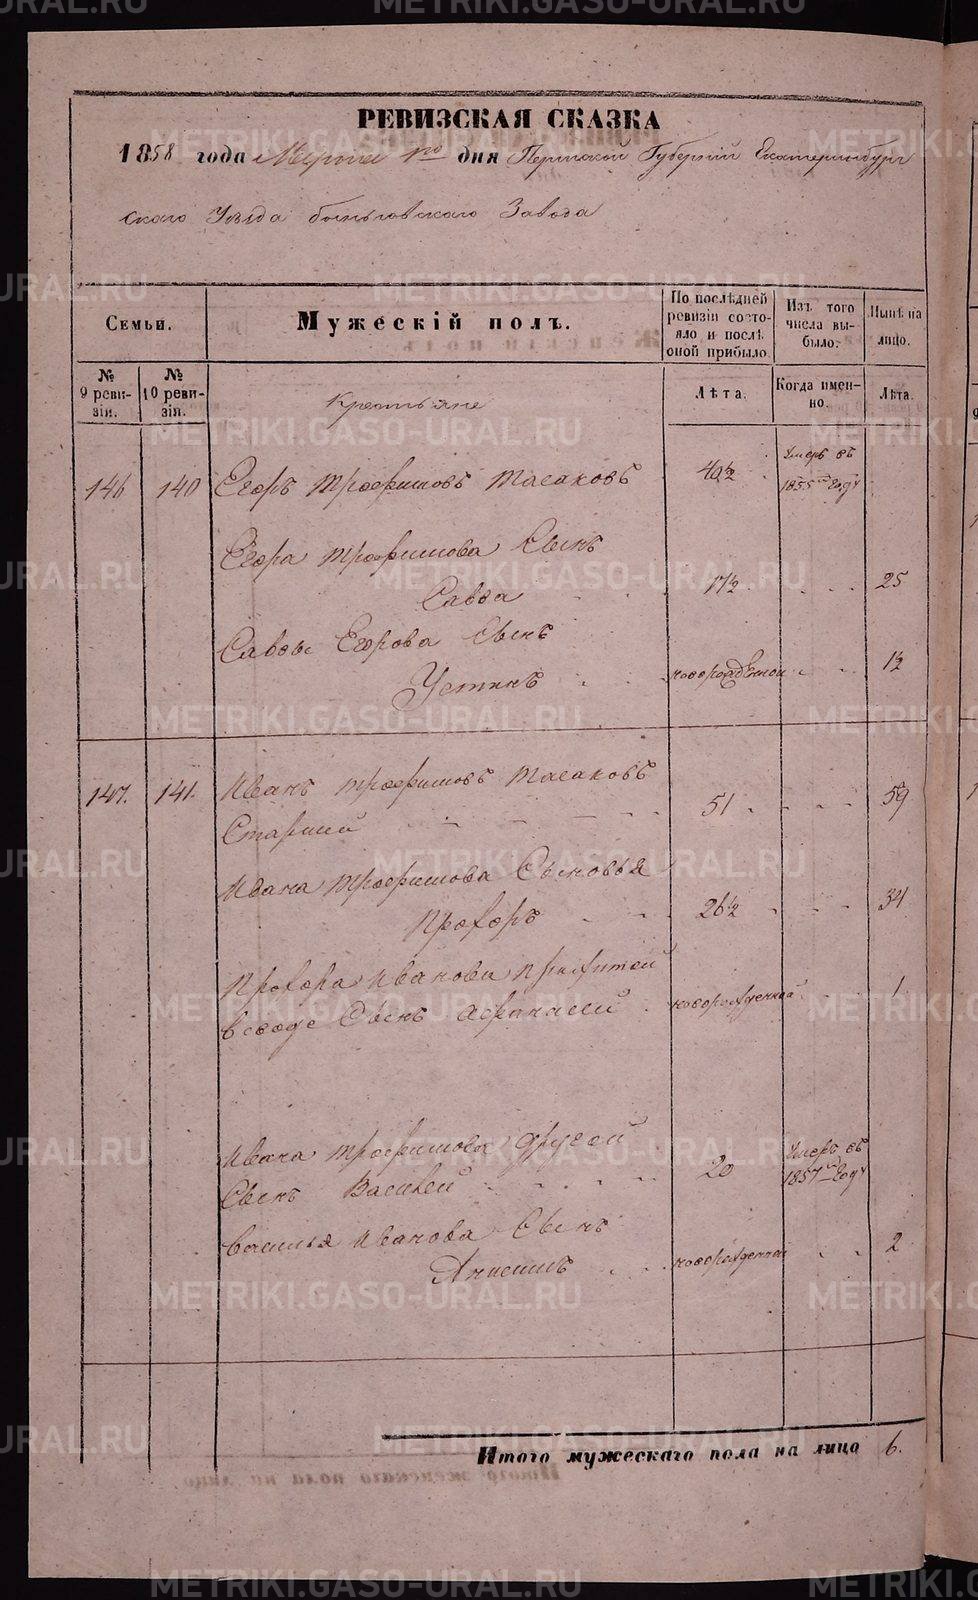 РЕВИЗСКАЯ СКАЗКА
1858 года Марта 1го дня Пермской Губерній Екатеринбург
скаго Уѣзда Быньговскаго Завода
Семьи.
Мужескій полъ.
По послѣдней ревизіи состояло и послѣ оной прибыло.
Изъ того числа выбыло.
Нынѣ на лицо.
№ 9 ревизіи.
№ 10 ревизіи.
Крестьяне
Лѣта.
Когда именно.
Лѣта.
146 140 Егоръ Трофимовъ Масаковъ 40½ Умеръ въ 1855м Году
Егора Трофимова Сынъ
Савва 17½ 25
Саввы Егорова Сынъ
Устинъ новорожденной 1½
147. 141. Иванъ Трофимовъ Масаковъ
Старшей 51 59
Ивана Трофимова Сыновья
Прохоръ 26½ 34
Прохора Иванова прижитой
Сынъ Афонасей новорожденной 1
Ивана Трофимова другой
Сынъ Василей 20 Умеръ въ 1857м Году
Василья Иванова Сынъ
Анисимъ новорожденной 2
Итого мужескаго пола на лицо 6.
METRIKI.GASO-URAL.RU